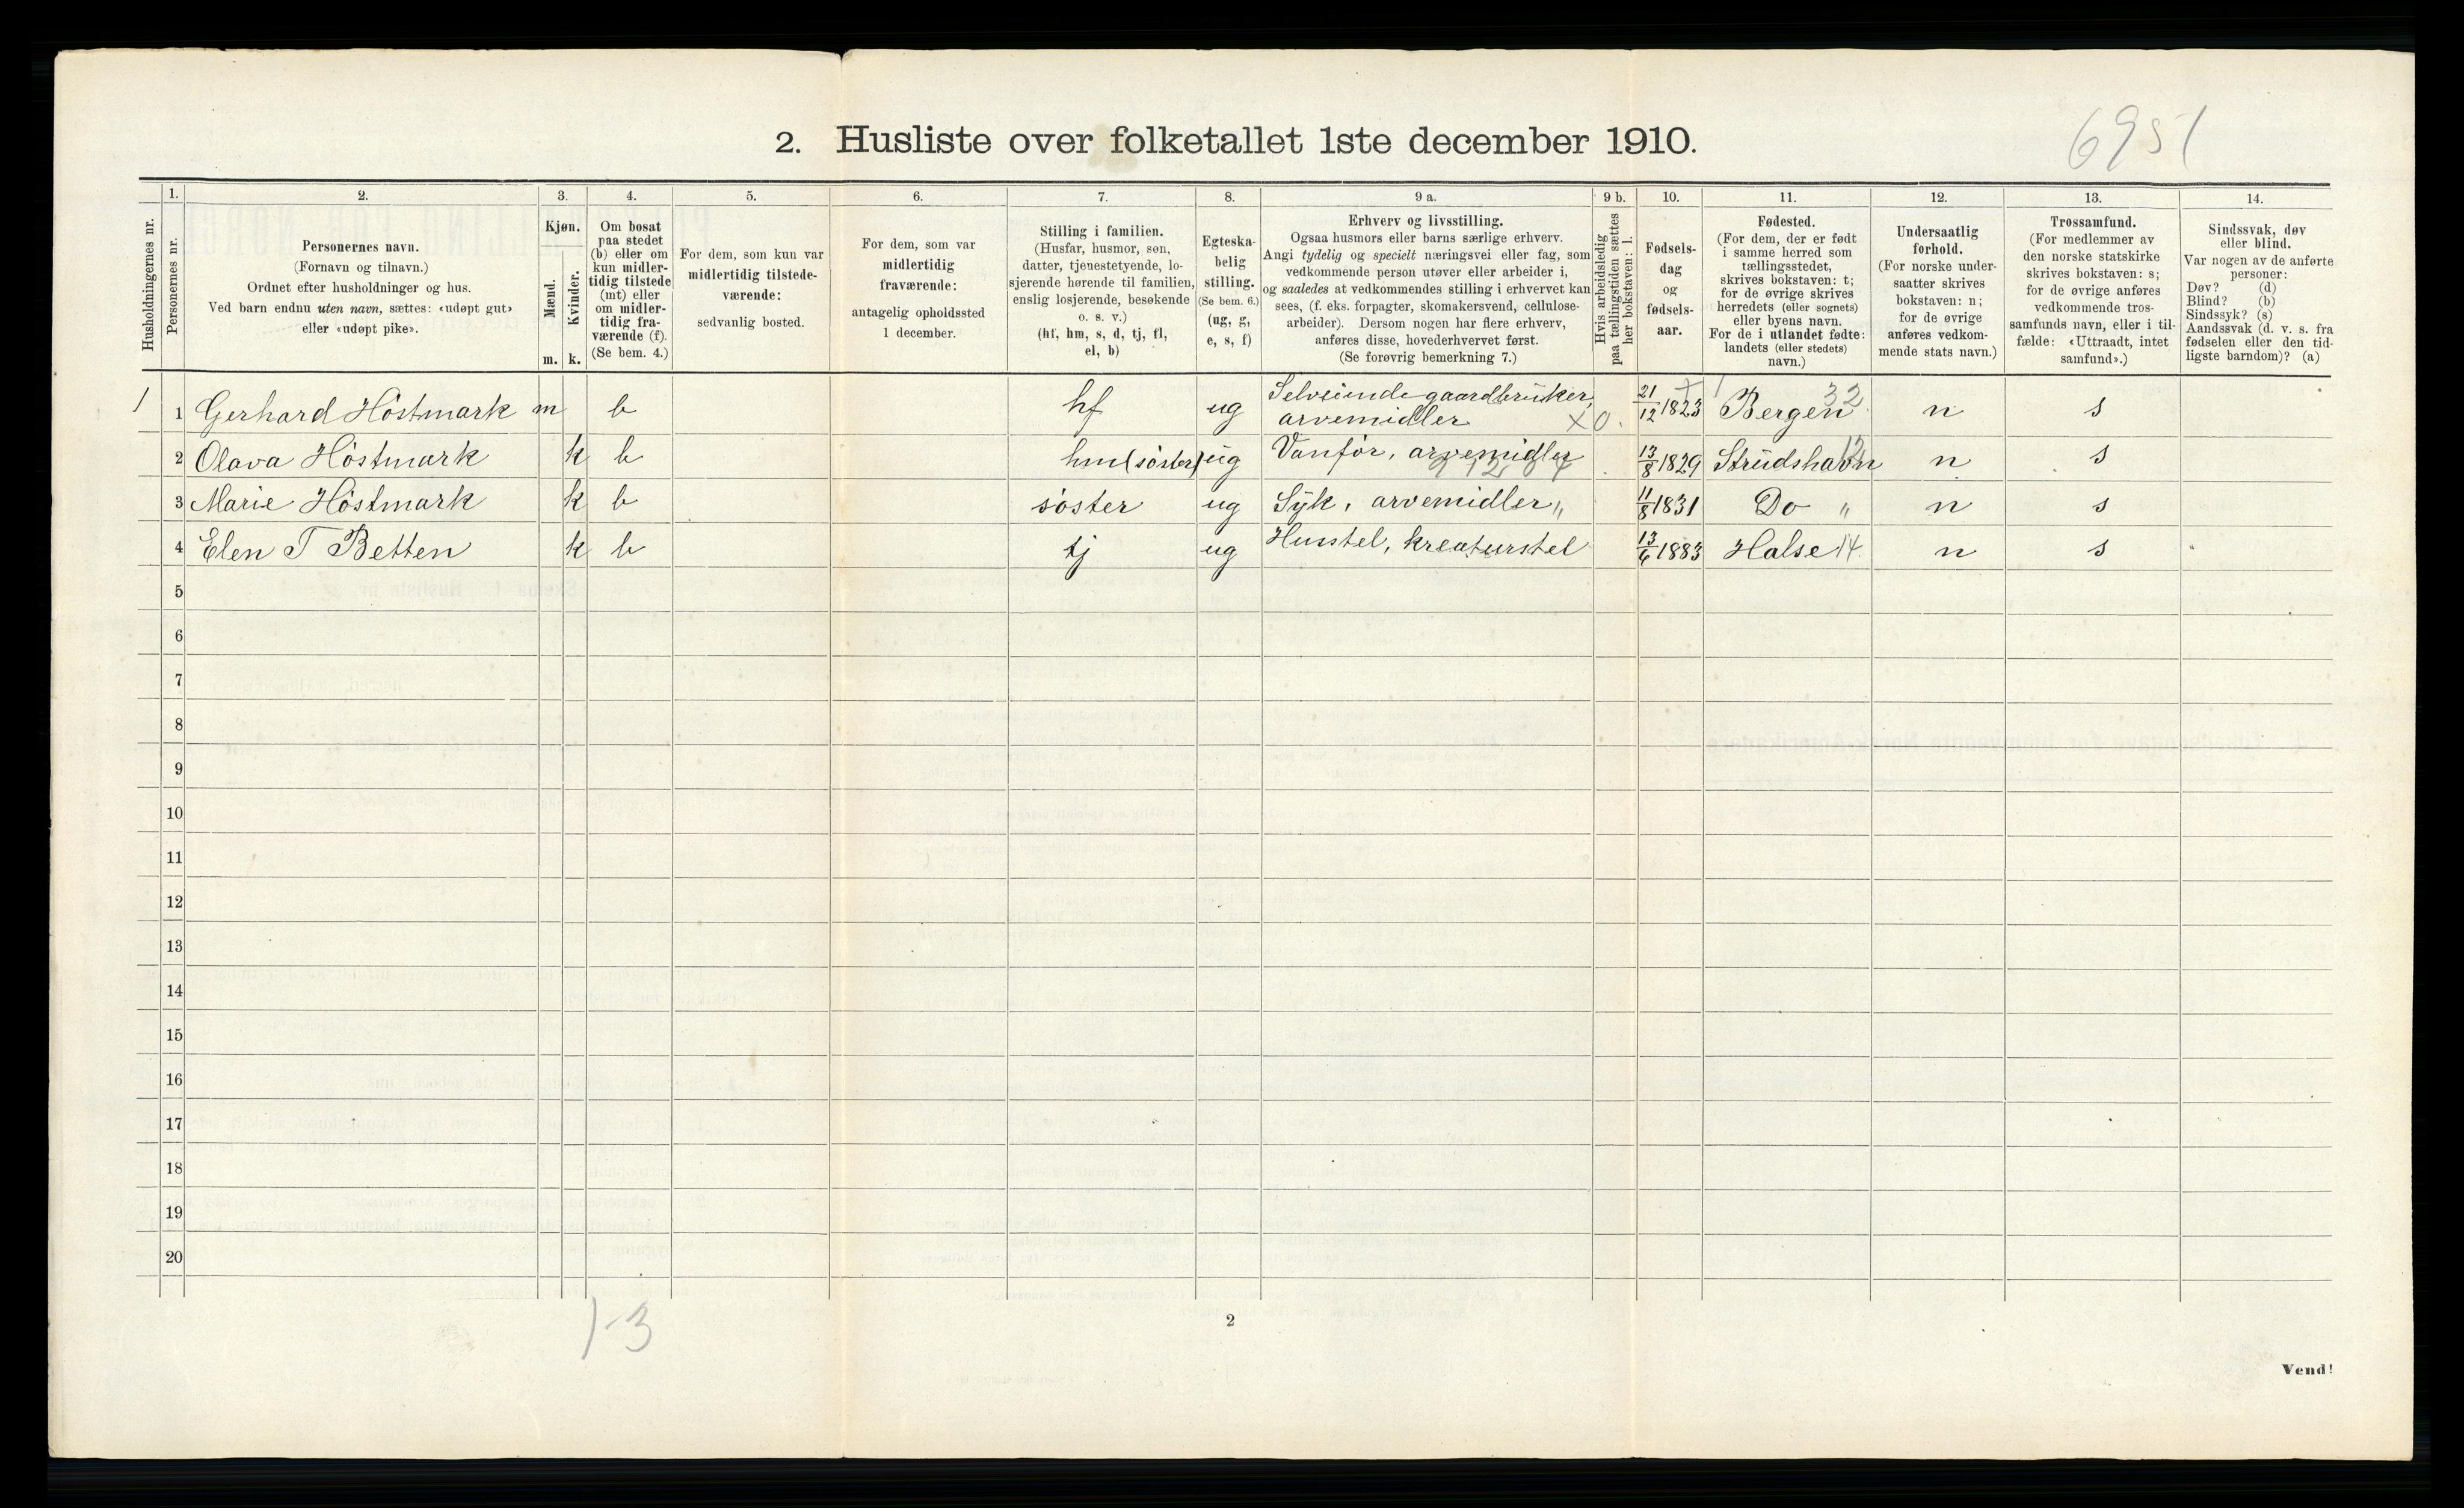 2. Husliste over folketallet 1ste december 1910.
6951
Husholdningernes nr.
1.
Personernes nr.
2.
Personernes navn.
(Fornavn og tilnavn.)
Ordnet efter husholdninger og hus.
Ved barn endnu uten navn, sættes: «udøpt gut»
eller «udøpt pike».
3.
Kjøn.
Mænd.
Kvinder.
m. k.
4.
Om bosat
paa stedet
(b) eller om
kun midler-
tidig tilstede
(mt) eller
om midler-
tidig fra-
værende (f).
(Se bem. 4.)
5.
For dem, som kun var
midlertidig tilstede-
værende:
sedvanlig bosted.
6.
For dem, som var
midlertidig
fraværende:
antagelig opholdssted
1 december.
7.
Stilling i familien.
(Husfar, husmor, søn,
datter, tjenestetyende, lo-
sjerende hørende til familien,
enslig losjerende, besøkende
o. s. v.)
(hf, hm, s, d, tj, fl,
el, b)
8.
Egteska-
belig
stilling.
(Se bem. 6.)
(ug, g,
e, s, f)
9 a.
Erhverv og livsstilling.
Ogsaa husmors eller barns særlige erhverv.
Angi tydelig og specielt næringsvei eller fag, som
vedkommende person utøver eller arbeider i,
og saaledes at vedkommendes stilling i erhvervet kan
sees, (f. eks. forpagter, skomakersvend, cellulose-
arbeider). Dersom nogen har flere erhverv,
anføres disse, hovederhvervet først.
(Se forøvrig bemerkning 7.)
9 b.
Hvis arbeidsledig
paa tællingstiden sættes
her bokstaven: l.
10.
Fødsels-
dag
og
fødsels-
aar.
11.
Fødested.
(For dem, der er født
i samme herred som
tællingsstedet,
skrives bokstaven: t;
for de øvrige skrives
herredets (eller sognets)
eller byens navn.
For de i utlandet fødte:
landets (eller stedets)
navn.)
12.
Undersaatlig
forhold.
(For norske under-
saatter skrives
bokstaven: n;
for de øvrige
anføres vedkom-
mende stats navn.)
13.
Trossamfund.
(For medlemmer av
den norske statskirke
skrives bokstaven: s;
for de øvrige anføres
vedkommende tros-
samfunds navn, eller i til-
fælde: «Uttraadt, intet
samfund».)
14.
Sindssvak, døv
eller blind.
Var nogen av de anførte
personer:
Døv? (d)
Blind? (b)
Sindssyk? (s)
Aandssvak (d. v. s. fra
fødselen eller den tid-
ligste barndom)? (a)
1 1 Gerhard Höstmark m b hf ug Selveiende gaardbruker, arvemidler x0. 21/12 1823 Bergen 32 n s
2 Olava Höstmark k b hm (söster) ug Vanför, arvemidler 13/8 1829 Strüdshavn 12 n s
3 Marie Höstmark k b söster ug Syk, arvemidler „ 11/8 1831 Do „ n s
4 Elen T Betten k b tj ug Husstel, kreaturstel 13/6 1883 Halse 14. n s
5
6
7
8
9
10
11
12
13
14
15
16
17
18
19
20
1-3
2
Vend!